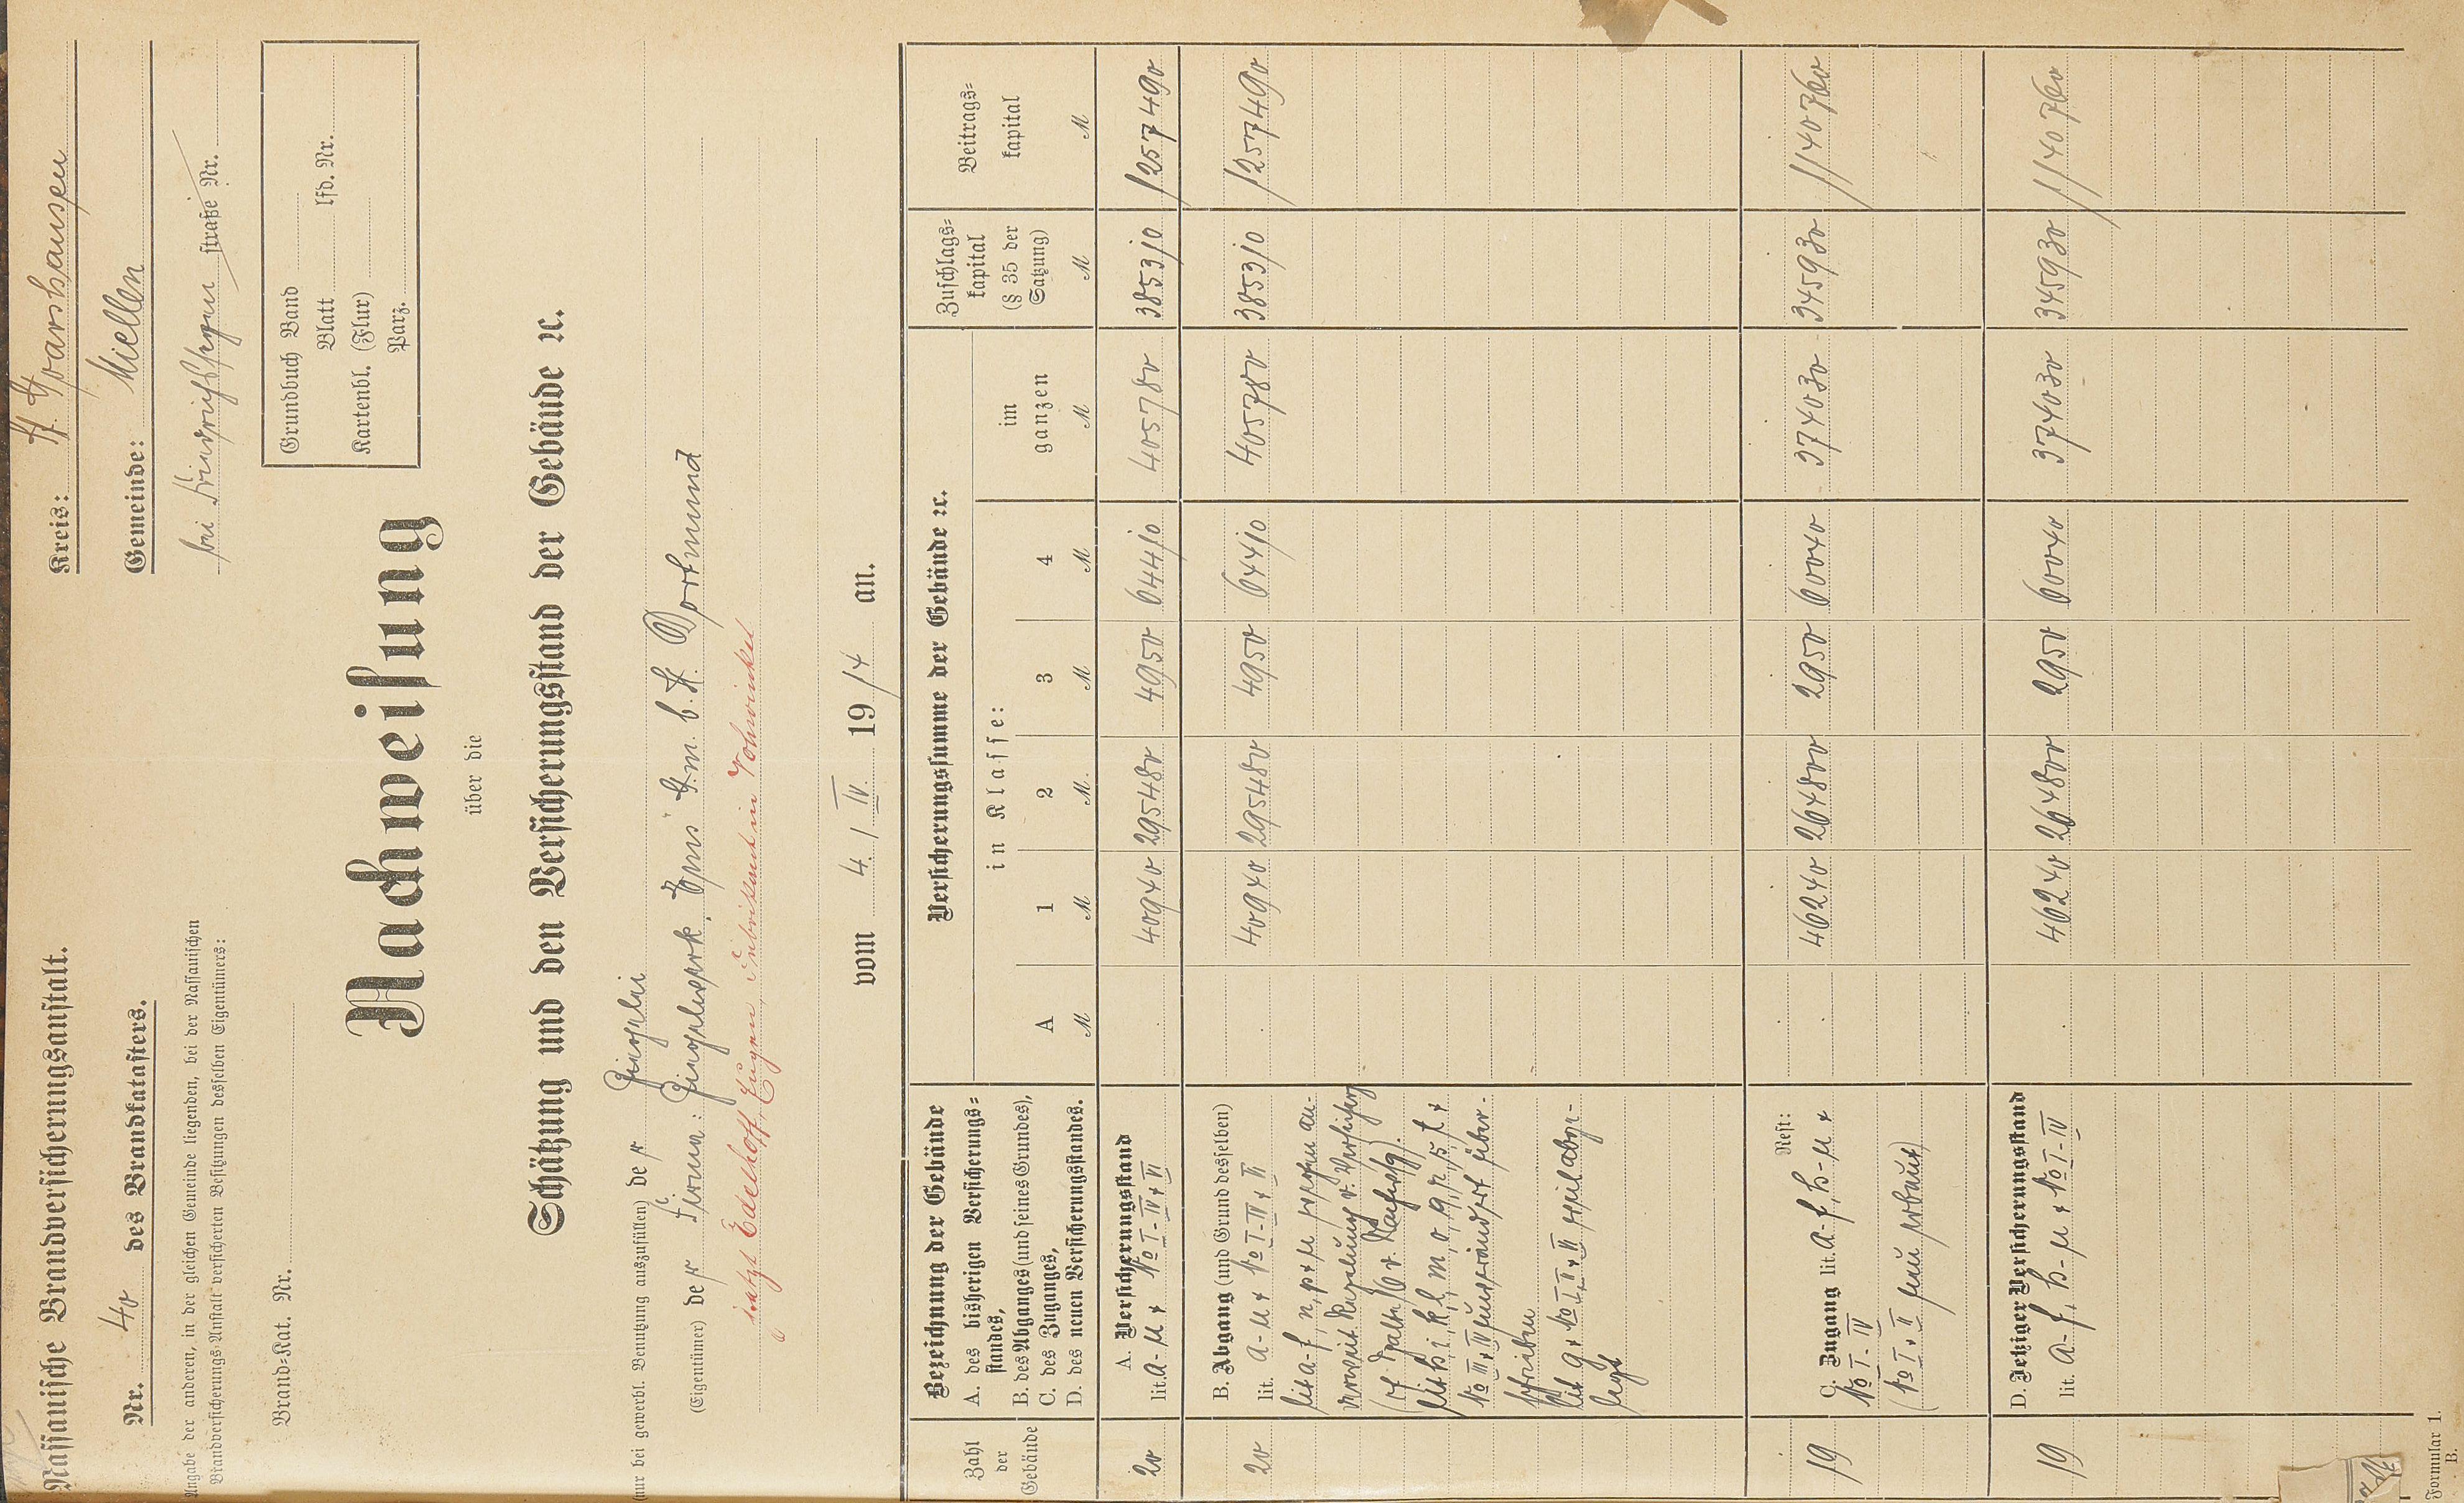 Nassauische Brandversicherungsanstalt.
Nr. 40 des Brandkatasters.
Angabe der anderen, in der gleichen Gemeinde liegenden, bei der Nassauischen
Brandversicherungs-Anstalt versicherten Besitzungen desselben Eigentümers:
Brand-Kat. Nr.
Kreis: St. Goarshausen
Gemeinde: Miellen
bei Friedrichssegen straße Nr.
Grundbuch Band
Blatt lfd. Nr.
Kartenbl. (Flur)
Parz.
Nachweisung
über die
Schätzung und den Versicherungsstand der Gebäude ꝛc.
(nur bei gewerbl. Benutzung auszufüllen) der Ziegelei
(Eigentümer) der Firma: Ziegelwerk G. m. b. H. Dortmund
jetzt Edelhoff, Eugen, Fabrikant in Vohwinkel
vom 4. / IV. 1914 an.
Zahl der Gebäude
Bezeichnung der Gebäude
A. des bisherigen Versicherungs=
standes,
B. des Abganges (und seines Grundes),
C. des Zuganges,
D. des neuen Versicherungsstandes.
Versicherungssumme der Gebäude ꝛc.
in Klasse:
A M 1 M 2 M. 3 M 4 M im ganzen M
Zuschlags= kapital (§ 35 der Satzung) M
Beitrags= kapital M
A. Versicherungsstand
20 lit. a-u + No I-IV + VI 40940 295480 4950 64410 405780 385310 1257490
B. Abgang (und Grund desselben)
20 lit. a-u + No I-IV + VI 40940 295480 4950 64410 405780 385310 1257490
lit a-f, n, p + u wegen an-
v. Versicherg
lit h, i, k, l, m, o, q, r, s, t +
No III + IV unverändert über-
schrieben
lit g + No I + II weil abge-
legt
Rest:
19 C. Zugang lit. a-f, h-u + 46240 264800 2950 60040 374030 345930 1140760
No I-IV
(No I + II neu erbaut)
D. Jetziger Versicherungsstand
19 lit. a-f, h-u + No I-IV 46240 264800 2950 60040 374030 345930 1140760
Formular 1.
B.